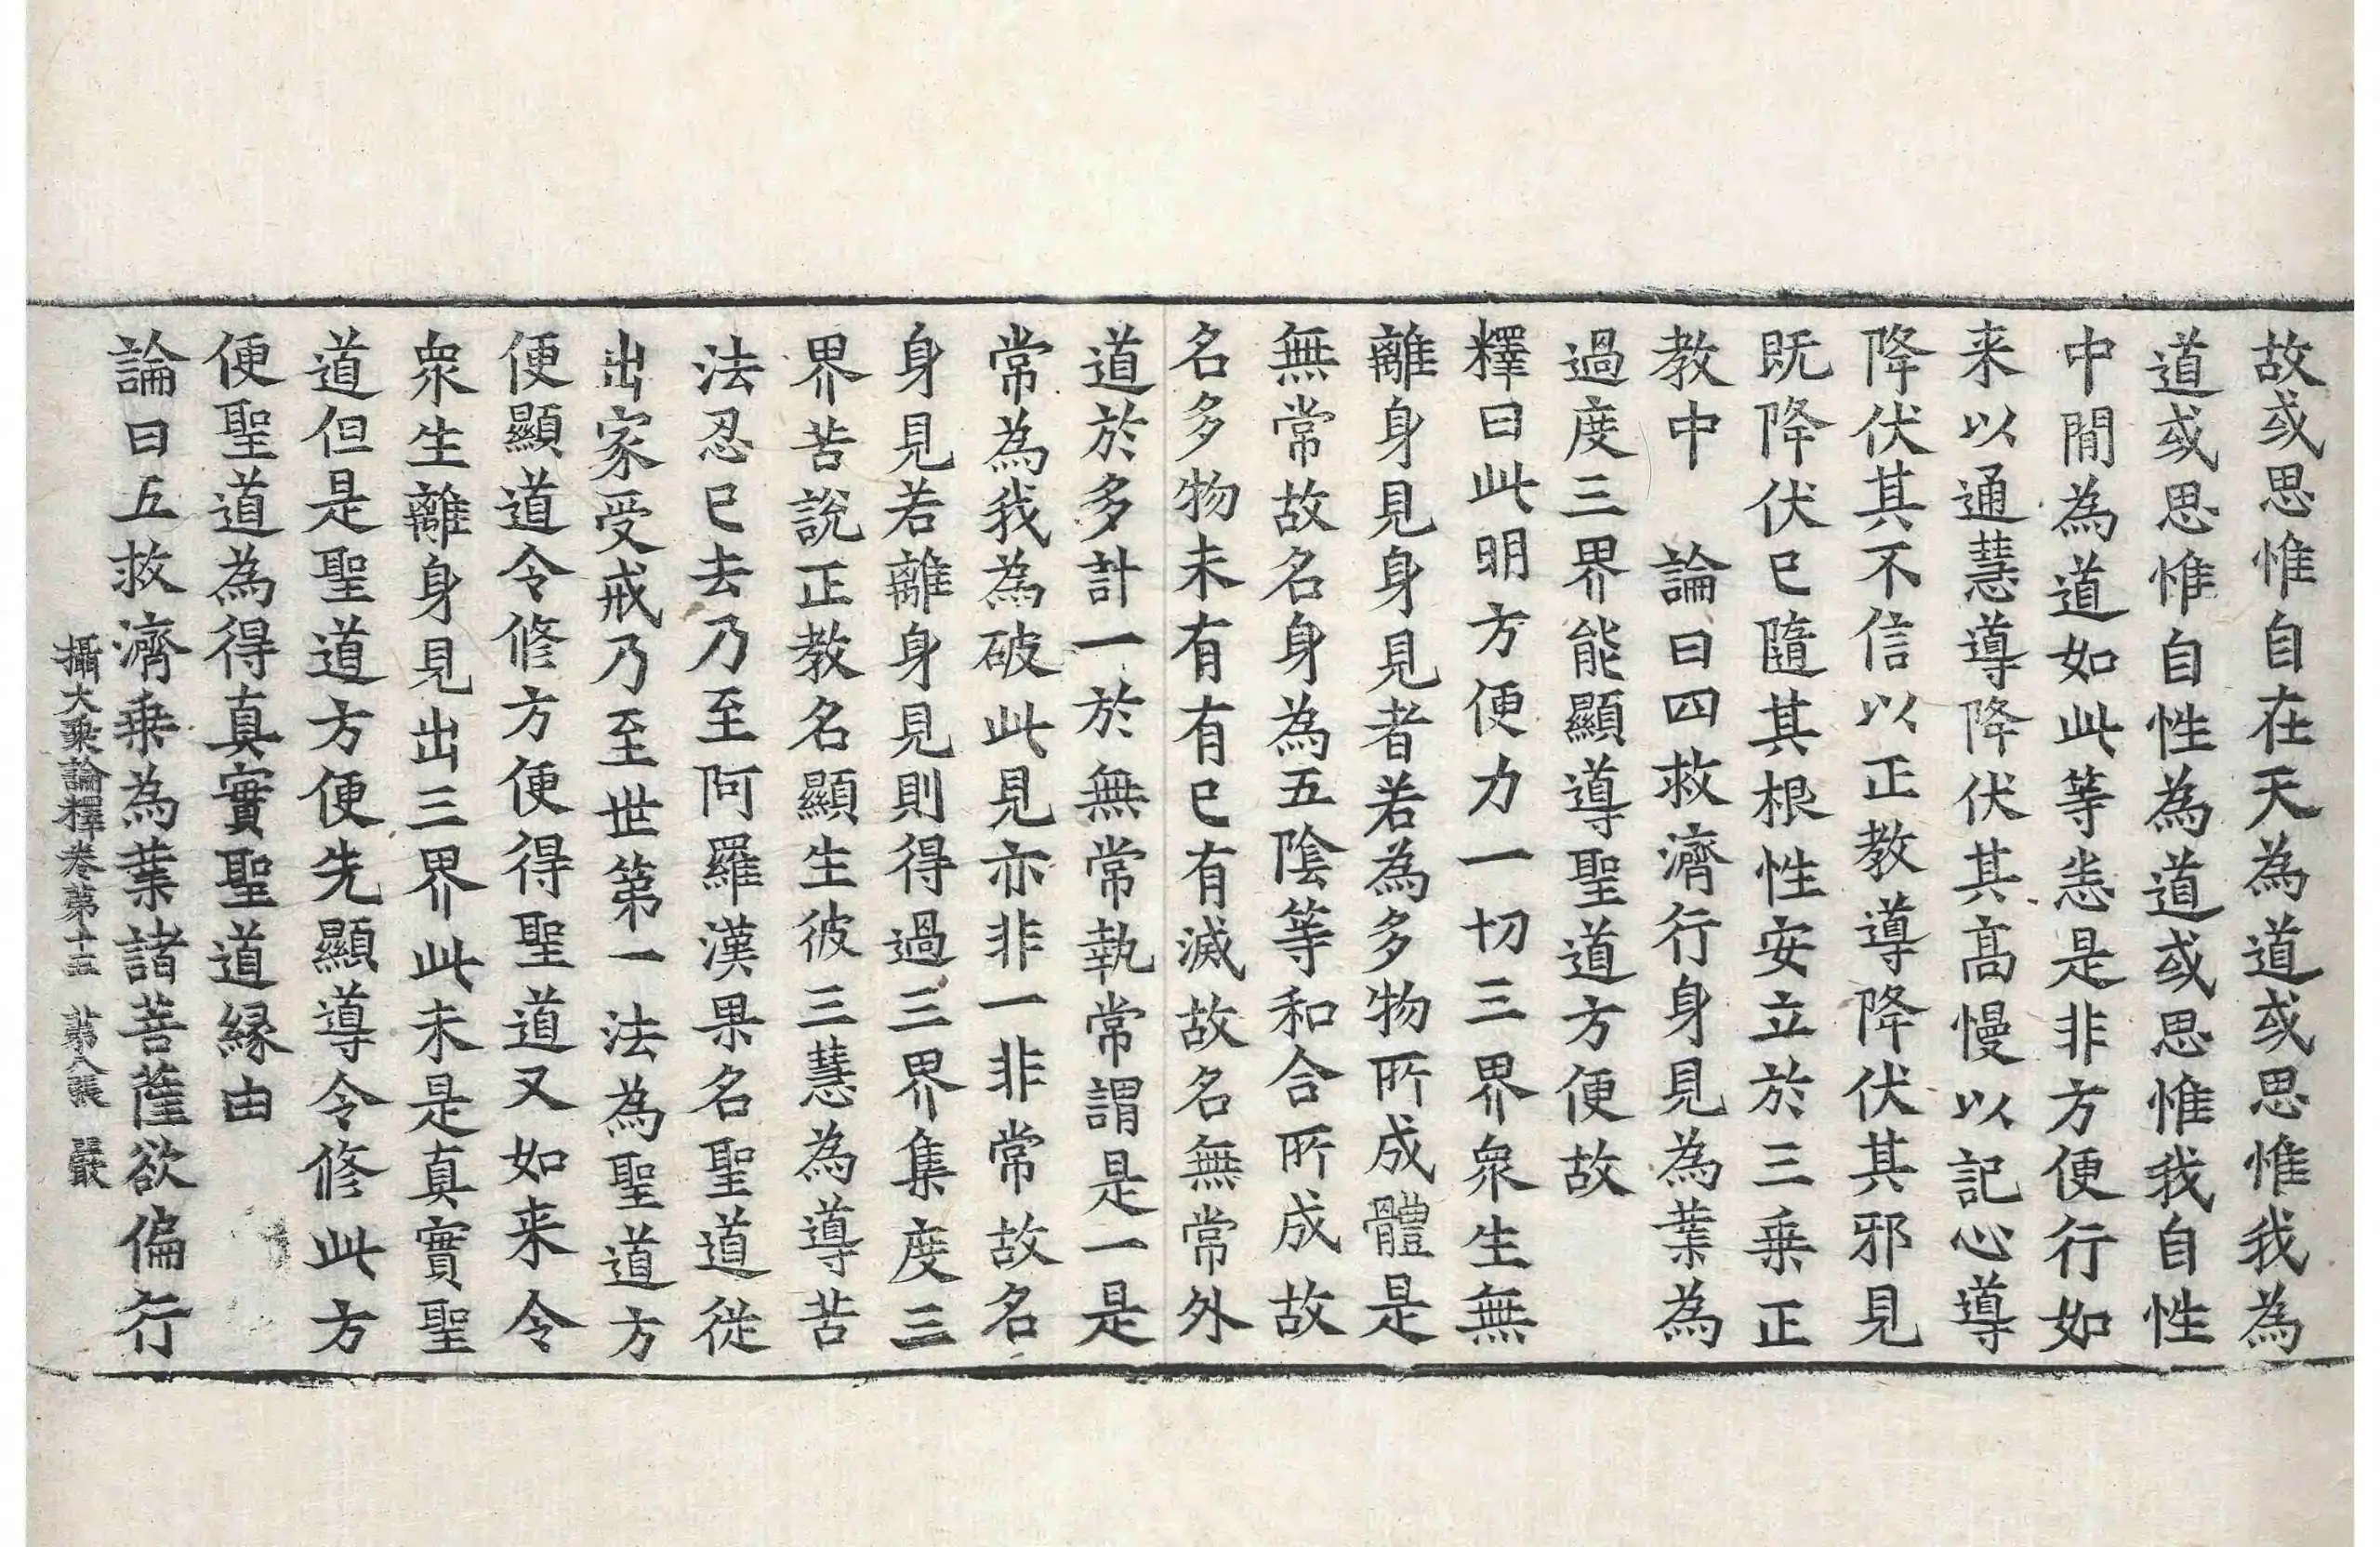 故或思惟自在天為道或思惟我為
道或思惟自性為道或思惟我自性
中間為道如此等恙是非方便行如
来以通慧導降伏其髙慢以記心導
降伏其不信以正教導降伏其邪見
既降伏已隨其根性安立於三乗正
教中　論曰四救濟行身見為業為
過度三界能顯導聖道方便故
釋曰此明方便力一切三界衆生無
離身見身見者若為多物所成體是
無常故名身為五陰等和合所成故
名多物未有有已有滅故名無常外
道於多計一於無常執常謂是一是
常為我為破此見亦非一非常故名
身見若離身見則得過三界集度三
界苦說正教名顯生彼三慧為導苦
法忍已去乃至阿羅漢果名聖道從
出家受戒乃至世第一法為聖道方
便顯道令修方便得聖道又如来令
衆生離身見出三界此未是真實聖
道但是聖道方便先顯導令修此方
便聖道為得真實聖道縁由
論曰五救濟乗為業諸菩薩欲偏行
攝大乗論釋卷第十五　第八張　嚴